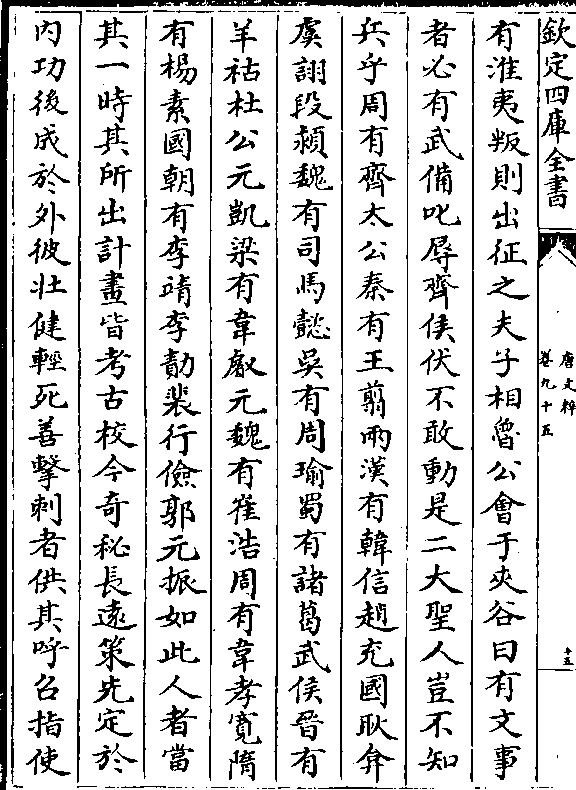 欽定四庫全書
唐文粹
卷九十五
十五
有淮夷叛則出征之夫子相魯公會于夾谷曰有文事
者必有武備叱辱齊侯伏不敢動是二大聖人豈不知
兵乎周有齊太公秦有王翦兩漢有韓信趙充國耿弇
虞詡段熲魏有司馬懿吳有周瑜蜀有諸葛武侯晉有
羊祜杜公元凱梁有韋叡元魏有崔浩周有韋孝寬隋
有楊素國朝有李靖李勣裴行儉郭元振如此人者當
其一時其所出計畫皆考古校今奇秘長遠策先定於
内功後成於外彼壯健輕死善擊刺者供其呼召指使